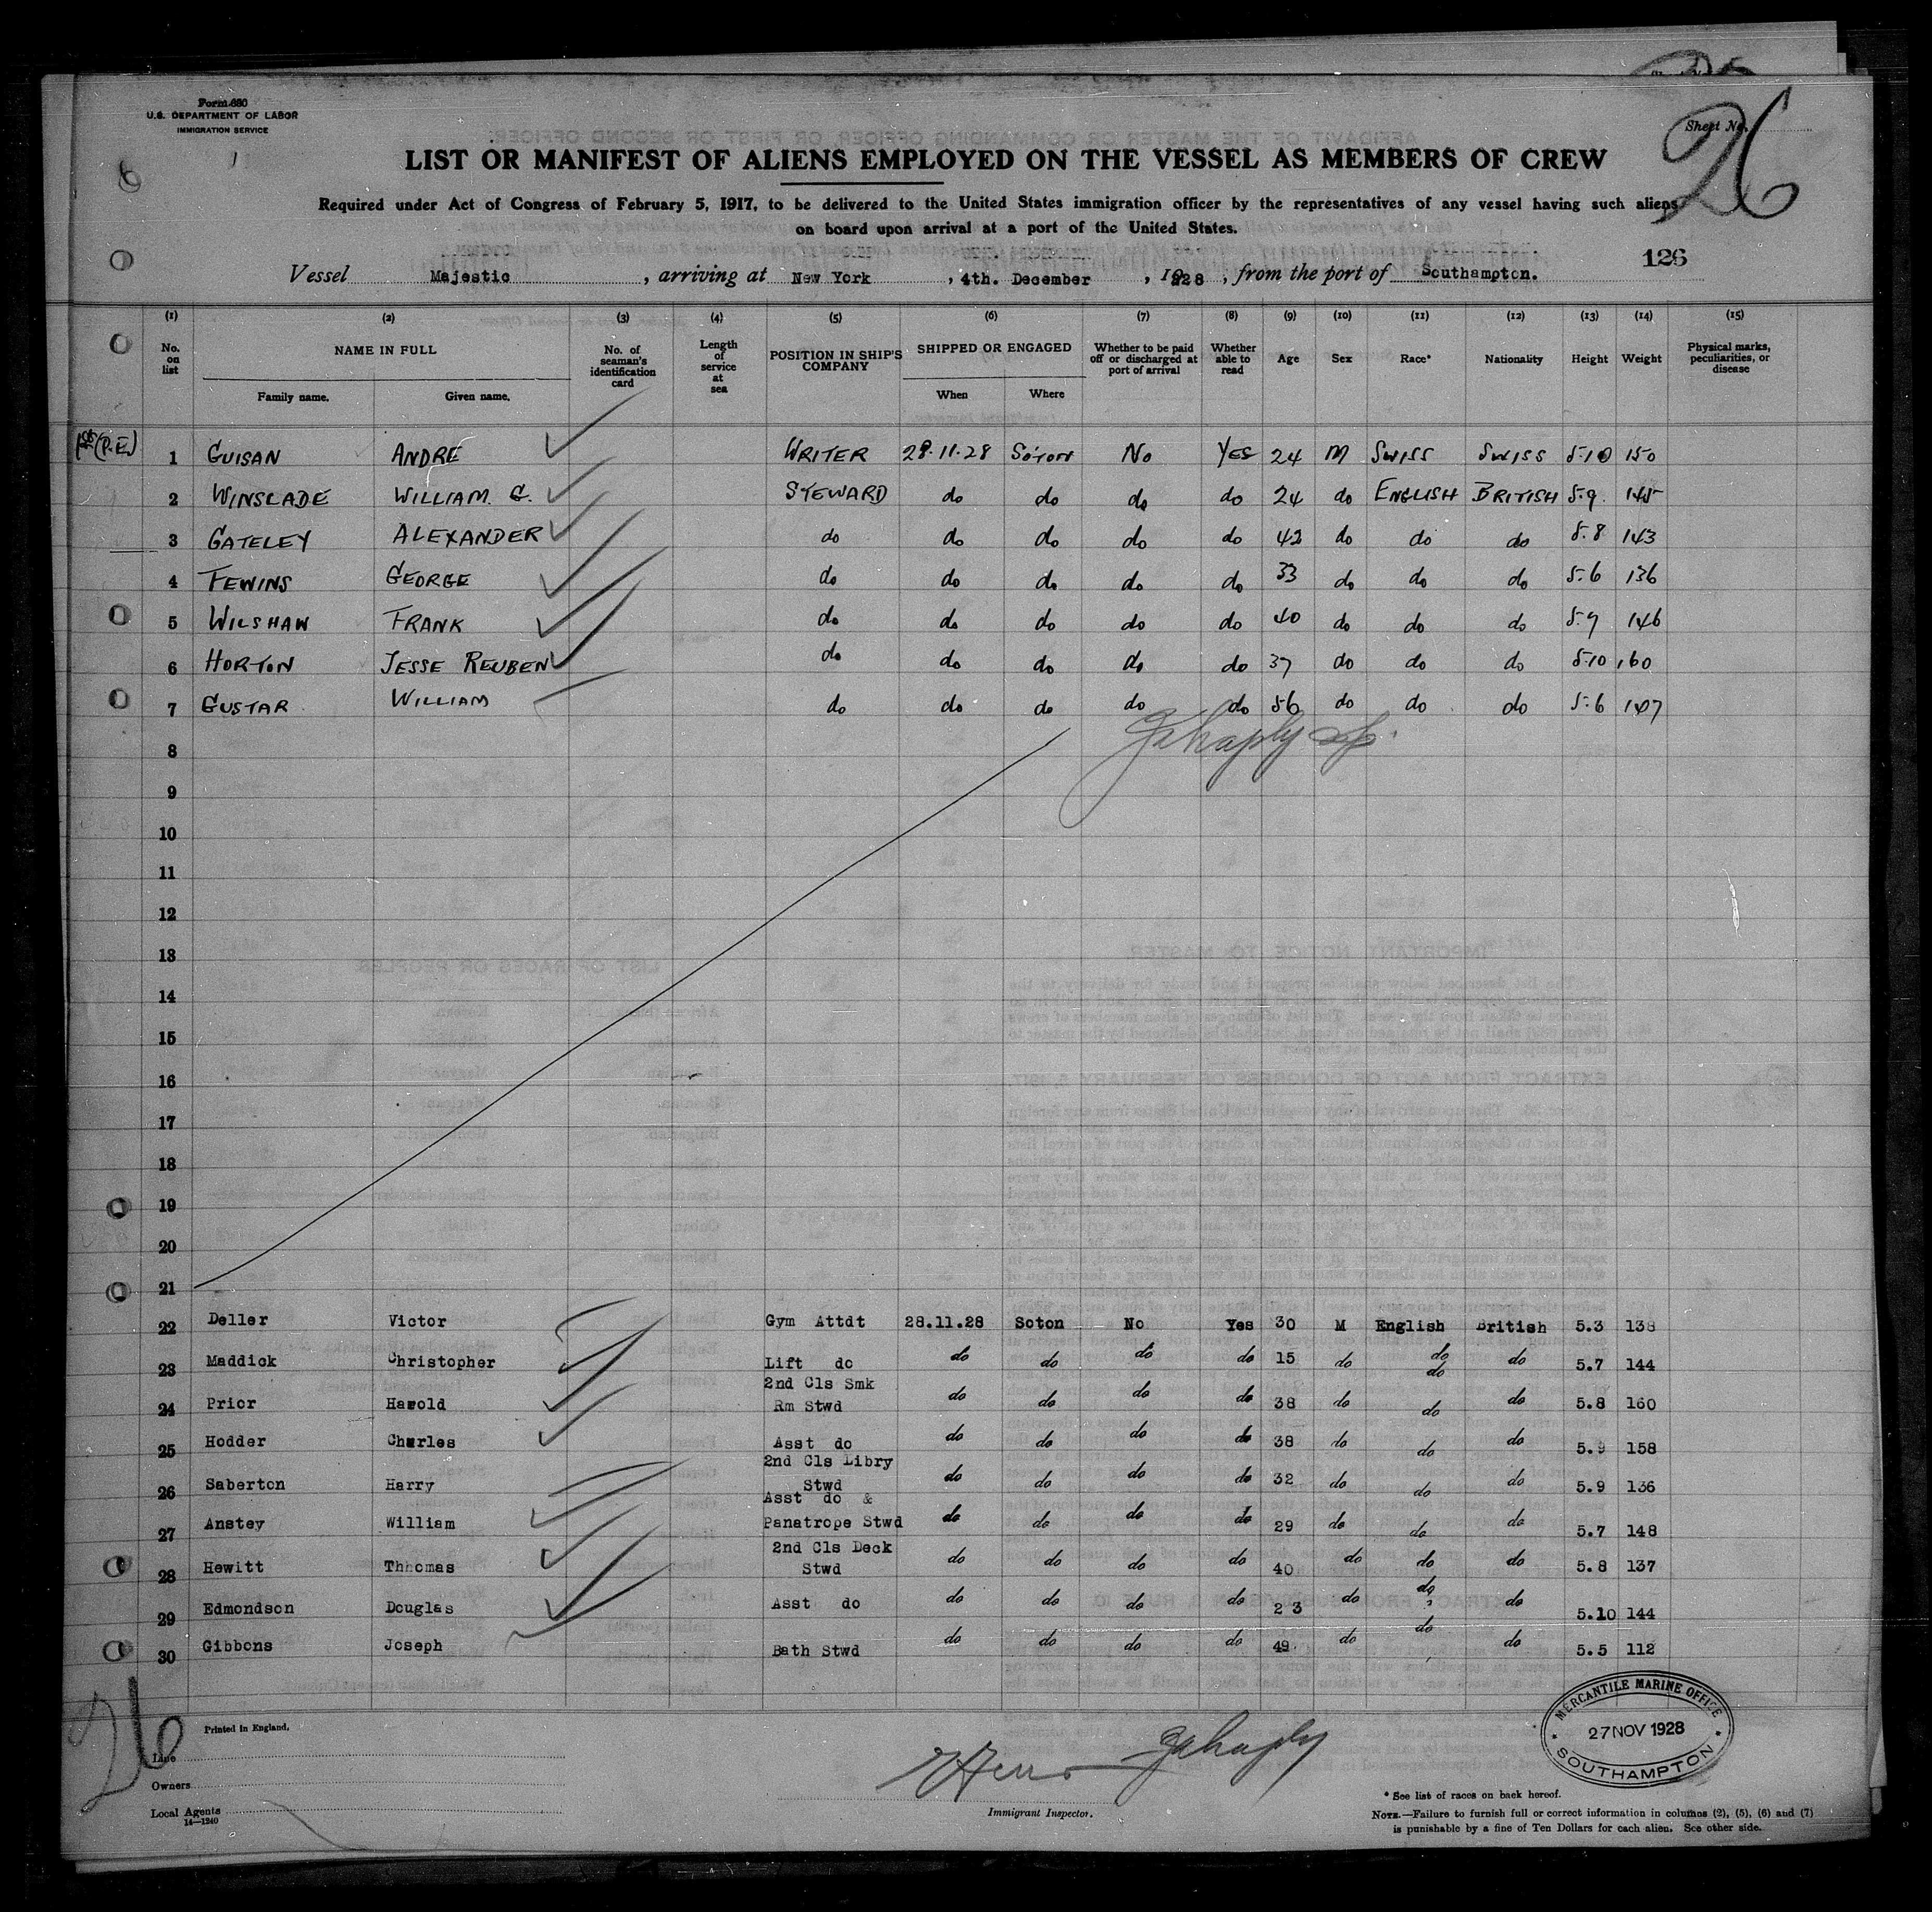 Form 680
U.S. DEPARTMENT OF LABOR
IMMIGRATION SERVICE
Sheet No.
26
LIST OR MANIFEST OF ALIENS EMPLOYED ON THE VESSEL AS MEMBERS OF CREW
Required under Act of Congress of February 5, 1917, to be delivered to the United States immigration officer by the representatives of any vessel having such aliens
on board upon arrival at a port of the United States.
126
Vessel Majestic, arriving at New York, 4th. December, 1928, from the port of Southampton.
(1) (2) (3) (4) (5) (6) (7) (8) (9) (10) (11) (12) (13) (14) (15)
No. on list NAME IN FULL Family name. Given name. No. of seaman's identification card Length of service at sea POSITION IN SHIP'S COMPANY SHIPPED OR ENGAGED When Where Whether to be paid off or discharged at port of arrival Whether able to read Age Sex Race* Nationality Height Weight Physical marks, peculiarities, or disease
(P.E) 1 GUISAN ANDRE WRITER 28.11.28 So'ton No YES 24 M SWISS SWISS 5.10 150
2 WINSLADE WILLIAM. G. STEWARD do do do do 24 do ENGLISH BRITISH 5.9. 145
3 GATELEY ALEXANDER do do do do do 42 do do do 5.8 143
4 FEWINS GEORGE do do do do do 33 do do do 5.6 136
5 WILSHAW FRANK do do do do do 40 do do do 5.9 146
6 HORTON JESSE REUBEN do do do do do 37 do do do 5.10 160
7 GUSTAR WILLIAM do do do do do 56 do do do 5.6 147
8
9
10
11
12
13
14
15
16
17
18
19
20
21
22 Deller Victor Gym Attdt 28.11.28 Soton No Yes 30 M English British 5.3 138
23 Maddick Christopher Lift do do do do do 15 do do do do 5.7 144
24 Prior Harold 2nd Cls Smk Rm Stwd do do do do 38 do do do 5.8 160
25 Hodder Charles Asst do do do do do 38 do do do 5.9 158
26 Saberton Harry 2nd Cls Libry Stwd do do do do 32 do do do 5.9 136
27 Anstey William Asst do & Panatrope Stwd do do do do 29 do do do 5.7 148
28 Hewitt Thhomas 2nd Cls Deck Stwd do do do do 40 do do do 5.8 137
29 Edmondson Douglas Asst do do do do do 23 do do do 5.10 144
30 Gibbons Joseph Bath Stwd do do do do 49 do do do 5.5 112
26
Printed in England.
Line
Owners
Local Agents
14—1240
Immigrant Inspector.
MERCANTILE MARINE OFFICE
27 NOV 1928
SOUTHAMPTON
* See list of races on back hereof.
NOTE.—Failure to furnish full or correct information in columns (2), (5), (6) and (7)
is punishable by a fine of Ten Dollars for each alien. See other side.